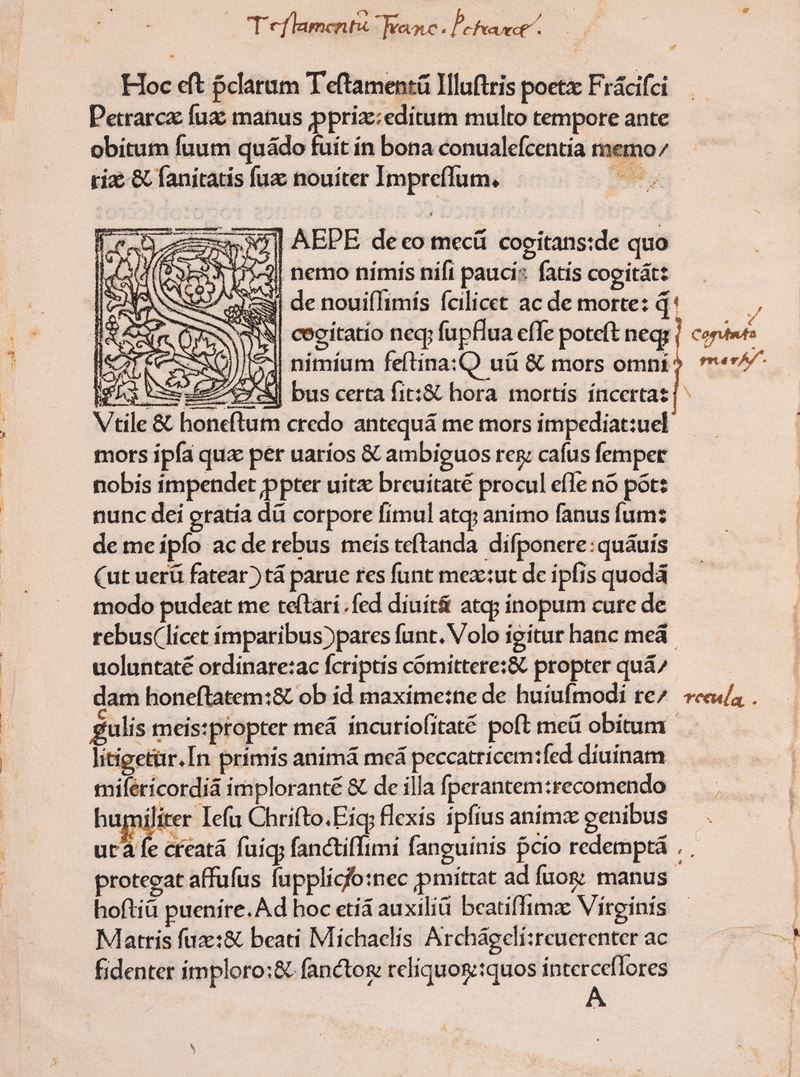 Testamentũ Franc. Petrarcæ.
Hoc eſt p̃clarum Teſtamentũ Illuſtris poetæ Frãciſci
Petrarcæ ſuæ manus ꝓpriæ:editum multo tempore ante
obitum ſuum quãdo fuit in bona conualeſcentia memo⸗
riæ & ſanitatis ſuæ nouiter Impreſſum.
SAEPE de eo mecũ cogitans:de quo
nemo nimis niſi pauci: ſatis cogitãt:
de nouiſſimis ſcilicet ac de morte: q̃
cogitatio neqꝫ ſupflua eſſe poteſt neqꝫ
cogitatio
mortis.
nimium feſtina:Q uũ & mors omni
bus certa ſit:& hora mortis incerta:
Vtile & honeſtum credo antequã me mors impediat:uel
mors ipſa quæ per uarios & ambiguos reꝝ caſus ſemper
nobis impendet ꝓpter uitæ breuitatẽ procul eſſe nõ põt:
nunc dei gratia dũ corpore ſimul atqꝫ animo ſanus ſum:
de me ipſo ac de rebus meis teſtanda diſponere:quãuis
(ut uerũ fatear)tã parue res ſunt meæ:ut de ipſis quodã
modo pudeat me teſtari.ſed diuitũ atqꝫ inopum cure de
rebus(licet imparibus)pares ſunt.Volo igitur hanc meã
uoluntatẽ ordinare:ac ſcriptis cõmittere:& propter quã⸗
dam honeſtatem:& ob id maxime:ne de huiuſmodi re⸗
recula.
gulis meis:propter meã incurioſitatẽ poſt meũ obitum
litigetur.In primis animã meã peccatricem:ſed diuinam
miſericordiã implorantẽ & de illa ſperantem:recomendo
humiliter Ieſu Chriſto.Eiqꝫ flexis ipſius animæ genibus
ut a ſe creatã ſuiqꝫ ſanctiſſimi ſanguinis p̃cio redemptã
protegat affuſus ſupplicio:nec ꝓmittat ad ſuoꝝ manus
hoſtiũ puenire.Ad hoc etiã auxiliũ beatiſſimæ Virginis
Matris ſuæ:& beati Michaelis Archãgeli:reuerenter ac
fidenter imploro:& ſanctoꝝ reliquoꝝ:quos interceſſores
A